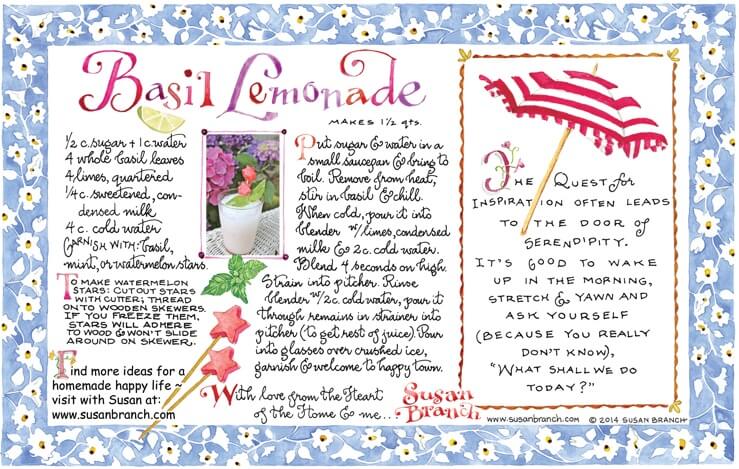 Basil Lemonade
MAKES 1½ qts.
½ c. sugar + 1 c. water
4 whole basil leaves
4 limes, quartered
¼ c. sweetened, con-
densed milk
4 c. cold water
GARNISH WITH: basil,
mint, or watermelon stars.
TO MAKE WATERMELON
STARS: CUT OUT STARS
WITH CUTTER; THREAD
ONTO WOODEN SKEWERS.
IF YOU FREEZE THEM,
STARS WILL ADHERE
TO WOOD & WON'T SLIDE
AROUND ON SKEWER.
Find more ideas for a
homemade happy life ~
visit with Susan at:
www.susanbranch.com
Put sugar & water in a
small saucepan & bring to
boil. Remove from heat,
stir in basil & chill.
When cold, pour it into
blender w/limes, condensed
milk & 2 c. cold water.
Blend 4 seconds on high.
Strain into pitcher. Rinse
blender w/2c. cold water, pour it
through remains in strainer into
pitcher (to get rest of juice). Pour
into glasses over crushed ice,
garnish & welcome to happy town.
With love from the Heart
of the Home & me...
Susan
Branch
THE QUEST for
INSPIRATION OFTEN LEADS
TO THE DOOR of
SERENDIPITY.
IT'S GOOD TO WAKE
UP IN THE MORNING,
STRETCH & YAWN AND
ASK YOURSELF
(BECAUSE YOU REALLY
DON'T KNOW),
"WHAT SHALL WE DO
TODAY?"
www.susanbranch.com © 2014 SUSAN BRANCH